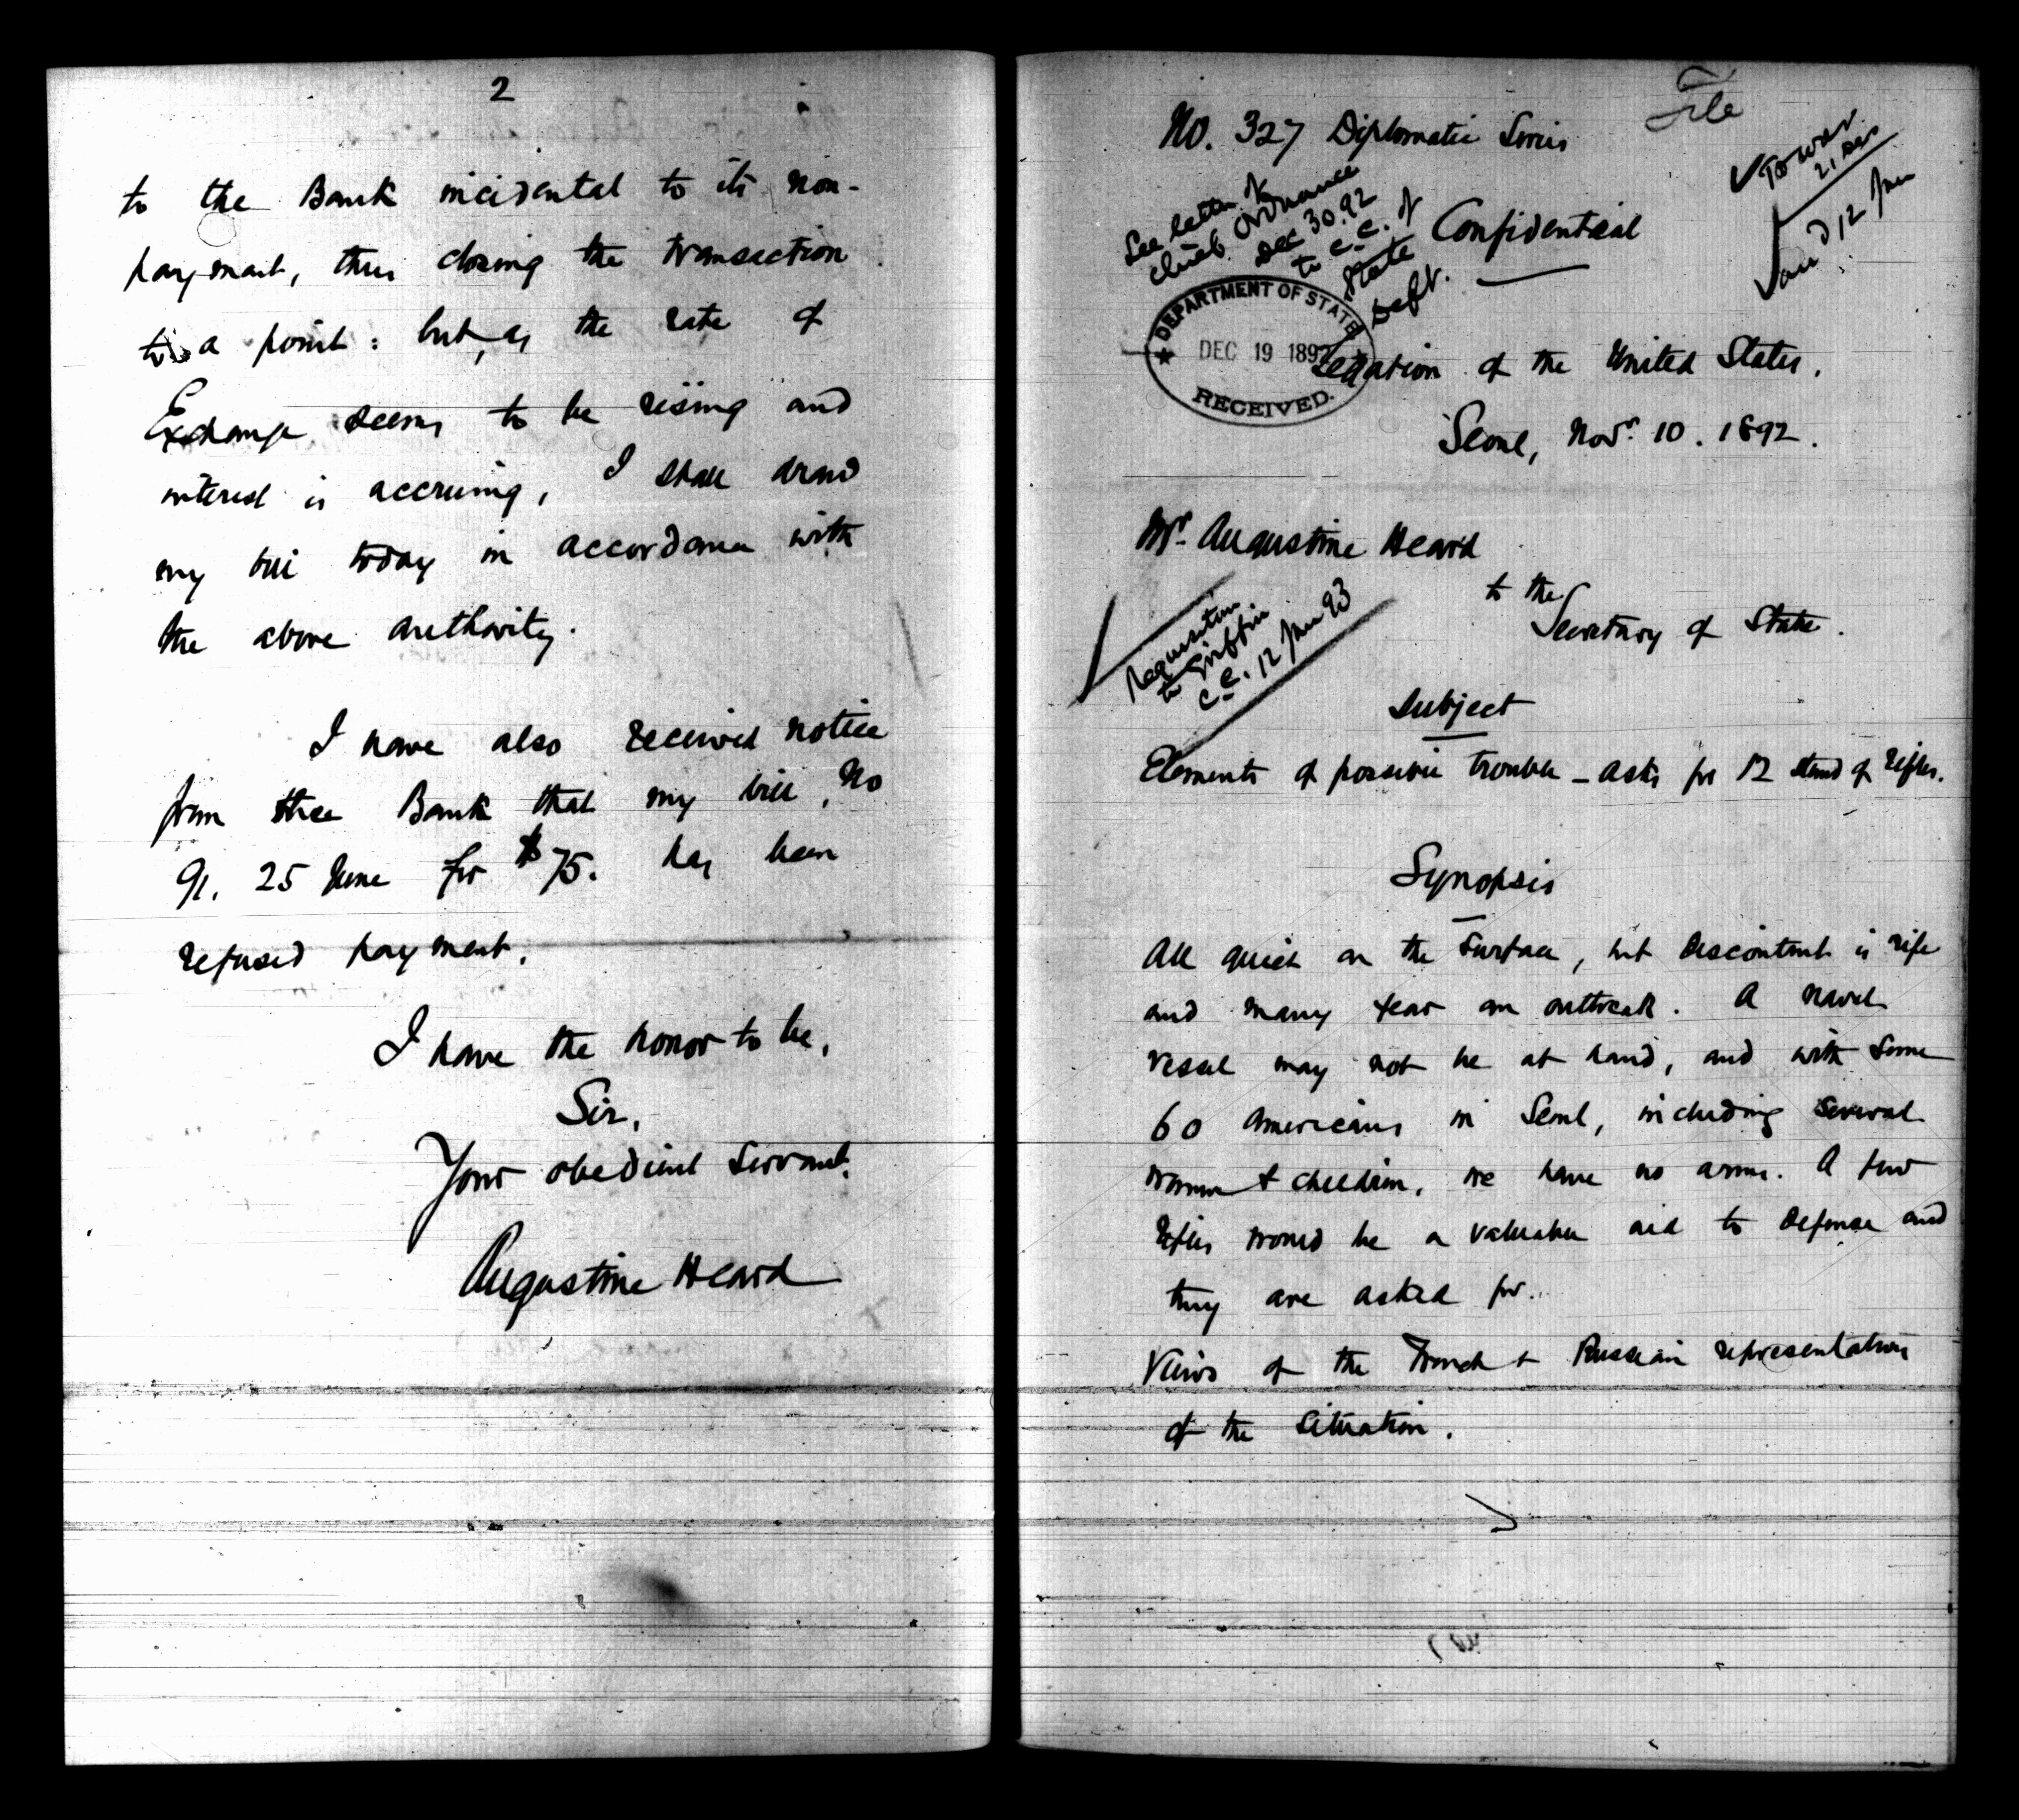 2
to the Bank incidental to its non-
payment, thus closing the transaction
to a point: but, as the rate of
Exchange seems to be rising and
interest is accruing, I shall draw
my bill today in accordance with
the above authority.
I have also received notice
from the Bank that my bill, No
91. 25 June for $75. has been
refused payment.
I have the honor to be,
Sir,
Your obedient servant,
Augustine Heard
File
No. 327 Diplomatic Series
To War
21 Dec
and 12 Jan
See letter of
Chief Ordnance
Dec 30.92
to C.C. of
State
Dept.
Confidential
DEPARTMENT OF STATE
DEC 19 1892
RECEIVED.
Legation of the United States.
Seoul, Novr. 10. 1892.
Mr. Augustine Heard
to the
Secretary of State.
Requisition
to Griffin
C.C. 12 Jan 93
Subject
Elements of possible trouble - asks for 12 stand of rifles.
Synopsis
All quiet on the surface, but discontent is rife
and many fear an outbreak. A naval
vessel may not be at hand, and with some
60 Americans in Seoul, including several
women & children, we have no arms. A few
rifles would be a valuable aid to defense and
they are asked for.
Views of the French & Russian representatives
of the situation.